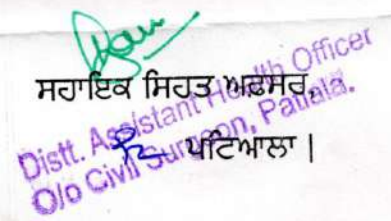 ਸਹਾਇਕ ਸਿਹਤ ਅਫ਼ਸਰ,
ਪਟਿਆਲਾ |
Distt. Assistant Health Officer
O/o Civil Surgeon, Patiala.